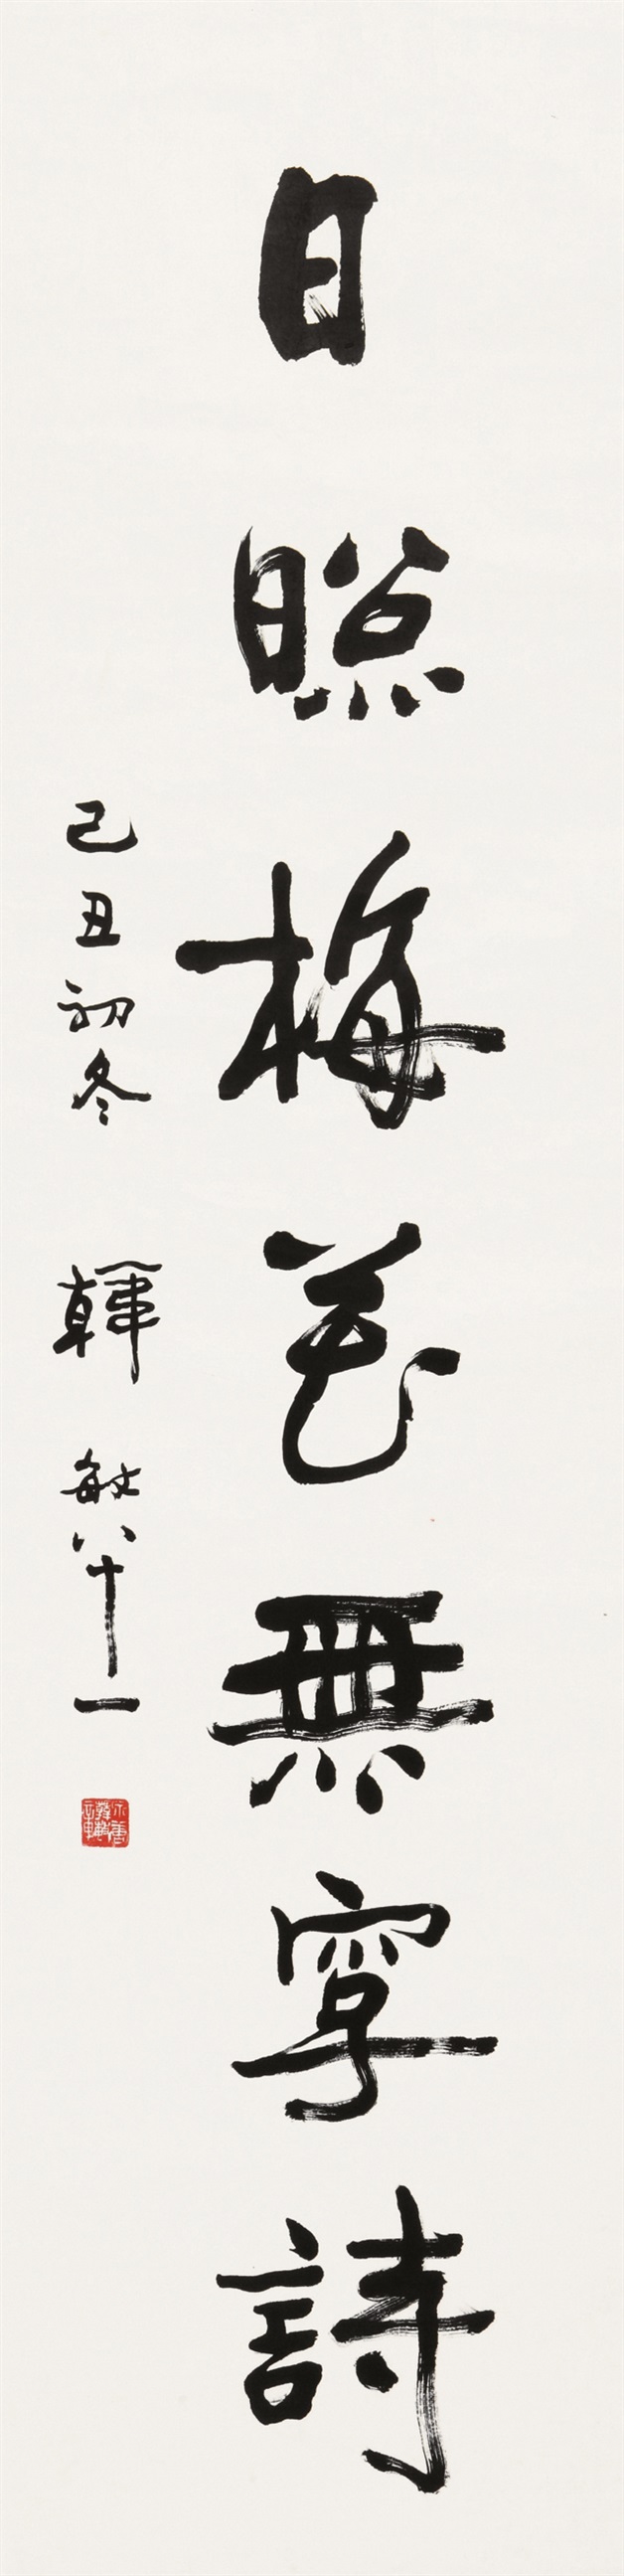 日照梅花無字詩
己丑初冬 韓敏八十一